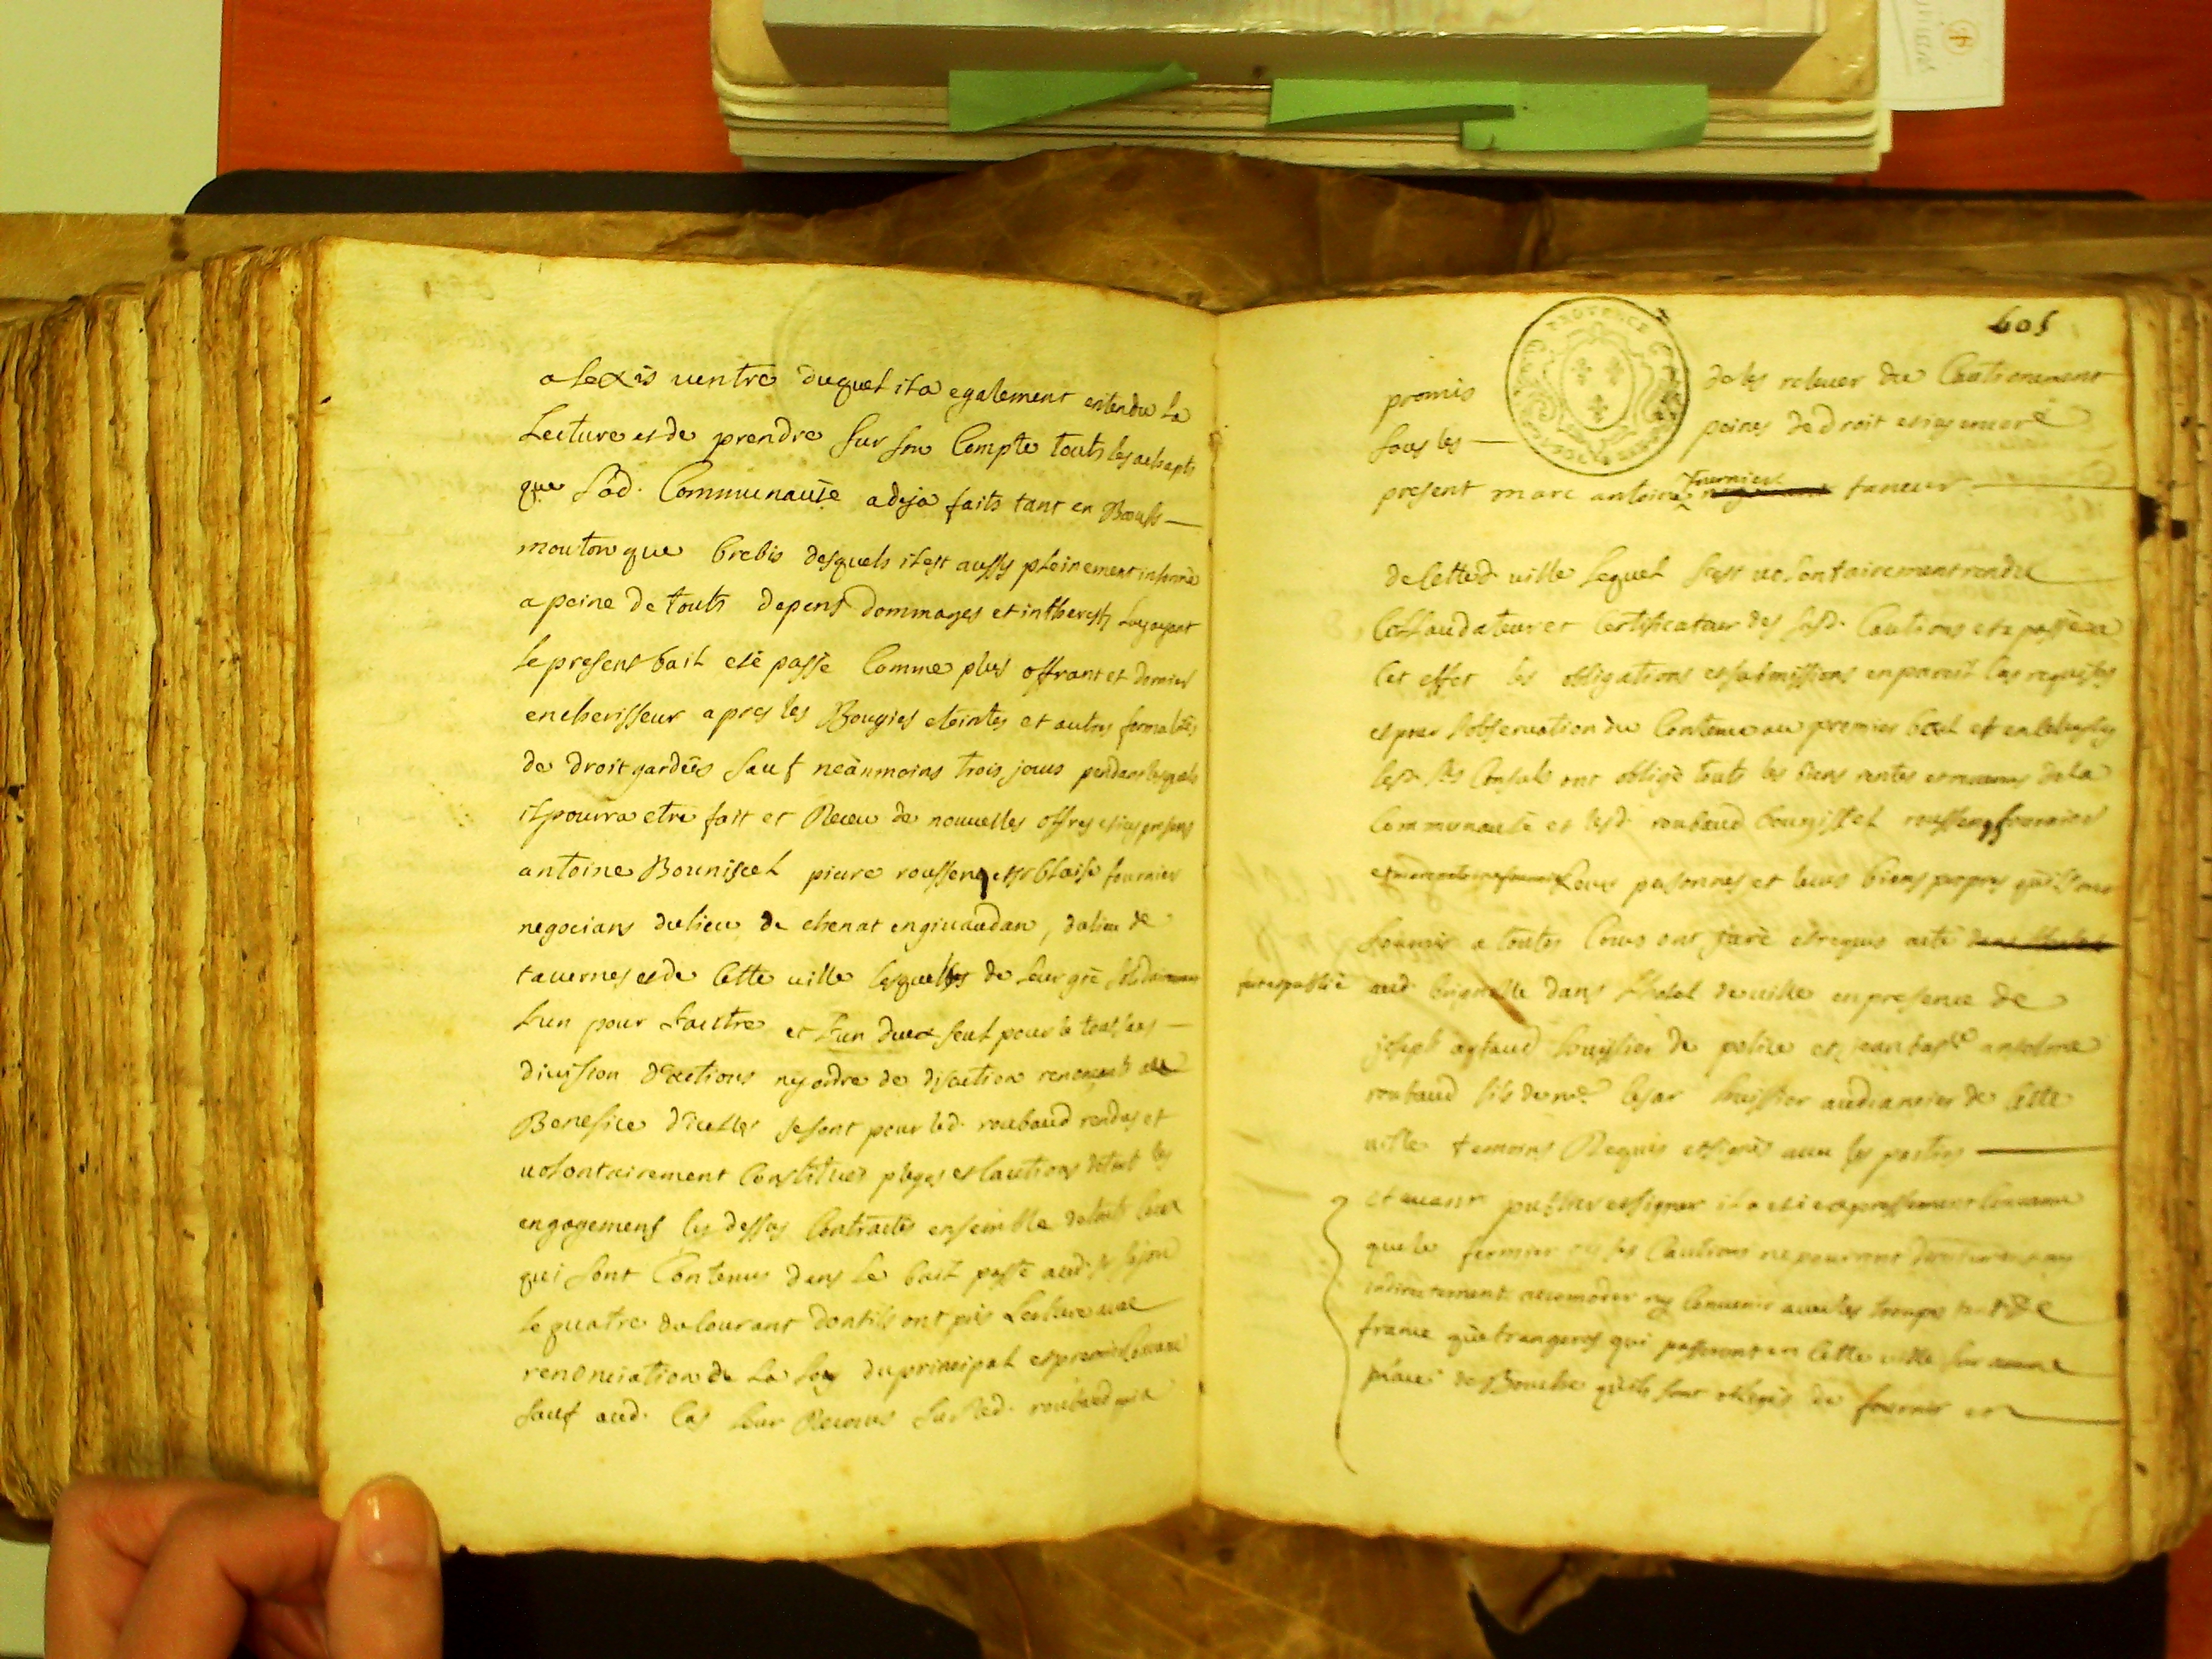 alexis ventre duquel il a egalement entendu la
Lecture et de prendre sur son Compte touts les achepts
que lad. Communauté a deja faits tant en Bœufs
mouton que brebis desquels il est aussy pleinement informé
a peine de touts depens dommages et intherests luy ayant
le present bail eté passé Comme plus offrant et dernier
encherisseur apres les Bougies eteintes et autres formalités
de droit gardées sauf neanmoins trois jours pendant lesquels
il pourra etre fait et Receu de nouvelles offres et icy presens
antoine Bouniscel pierre roussenq et sr blaise fournier
negocians du lieu de chenat en givaudan, du lieu de
tavernes et de Cette ville lesquels de leur gré solidairement
l'un pour l'autre et l'un d'eux seul pour le tout sans
division d'actions ny ordre de discution renonçant au
Benefice d'icelles se sont pour led. roubaud rendus et
volontairement Constitués pleges et Cautions de tout les
engagemens cy dessus Contractés ensemble de touts ceux
qui sont Contenus dans le bail passé aud. sr
le quatre du Courant dont ils ont pris Lecture avec
renonciation de la loy du principal et premier Convenu
sauf aud. Cas leur Recours sur led. roubaud qui a
601
PROVENCE
promis de les relever du Cautionement
sous les peines de droit et icy encore
present marc antoine fournier taneur
de Cette d. ville lequel s'est volontairement rendu
Collaudateur et Certificateur des susd. Cautions et a passé a
Cet effet les obligations et submissions en pareil Cas requises
et pour l'observation du Contenu au premier bail et en Celuy cy
lesd. srs Consuls ont obligé touts les biens rentes et revenus de la
Communauté et lesd. roubaud bouniscel roussenq fournier
leurs personnes et leurs biens propres qu'ils ont
soumis a toutes Cours ont juré et requis acte
fait et publié aud. brignolle dans l'hotel de ville en presence de
joseph aytaud de police et jean bapte anselme
roubaud fils de me Cesar huissier audiancier de Cette
ville temoins Requis et signés avec les parties
et avant publier et signer il a eté expressement Convenu
que le fermier et ses Cautions ne pourront directement ou
indirectement accomoder ny Convenir avec les troupes tant de
france qu'etrangeres qui passeront en Cette ville sur aucune
place de Bouche qu'ils sont obligés de fournir et